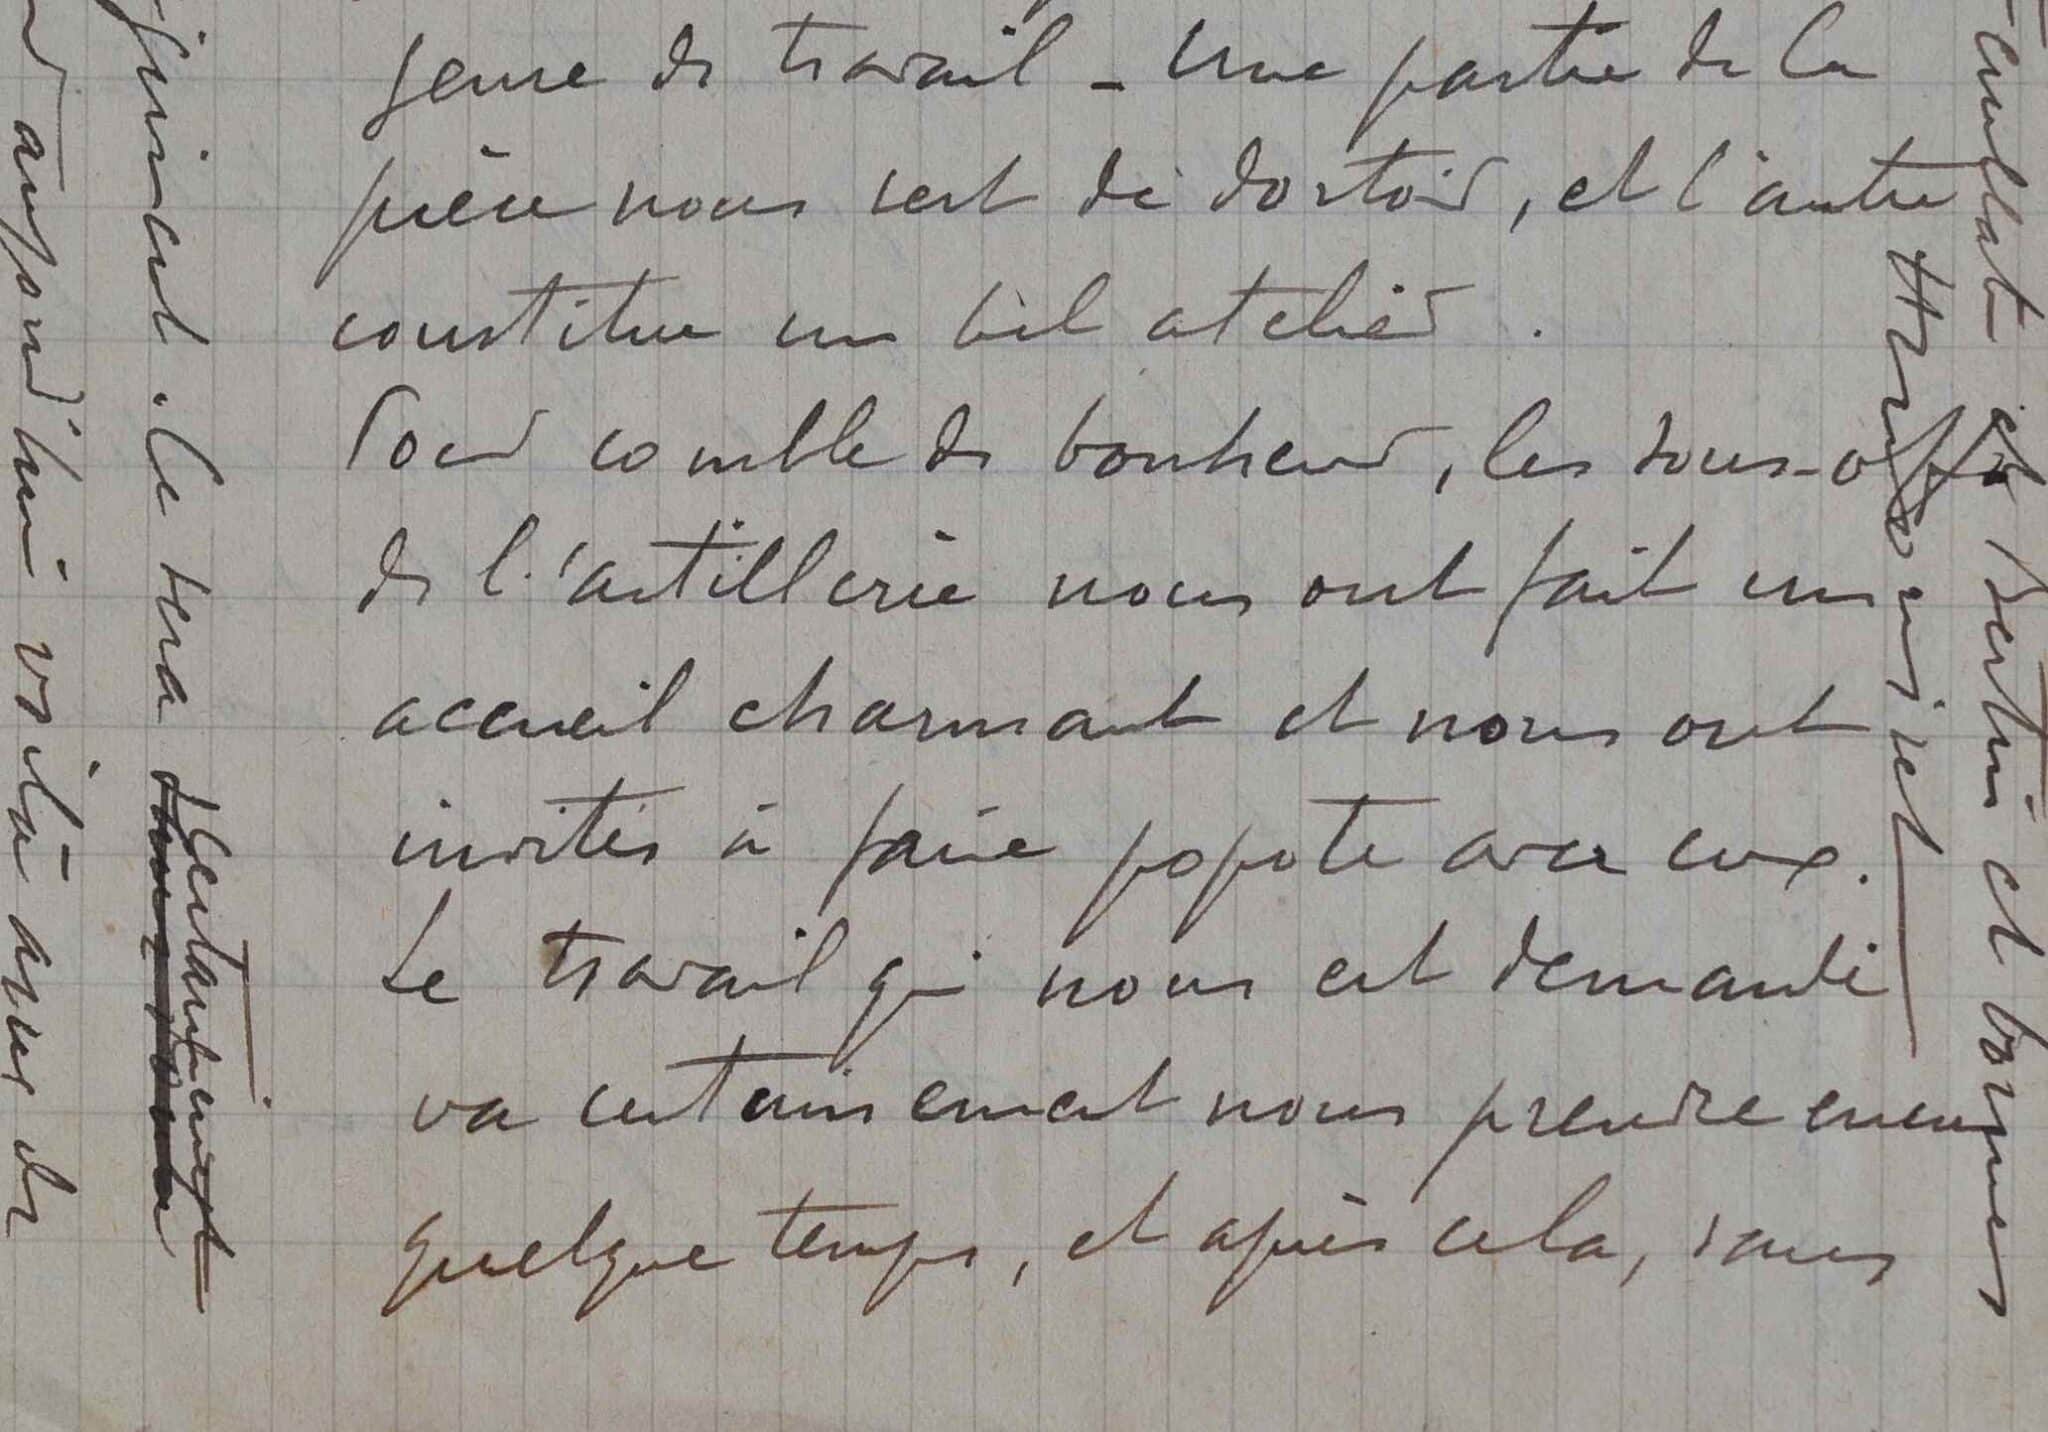 genre de travail - Une partie de la
pièce nous sert de dortoir, et l'autre
constitue un bel atelier.
Pour comble de bonheur, les sous-offs
de l'artillerie nous ont fait un
accueil charmant et nous ont
invités à faire popote avec eux.
Le travail qui nous est demandé
va certainement nous prendre encore
quelque temps, et après cela, nous
aujourd'hui voilà avec de
. Ce sera
et bonnes